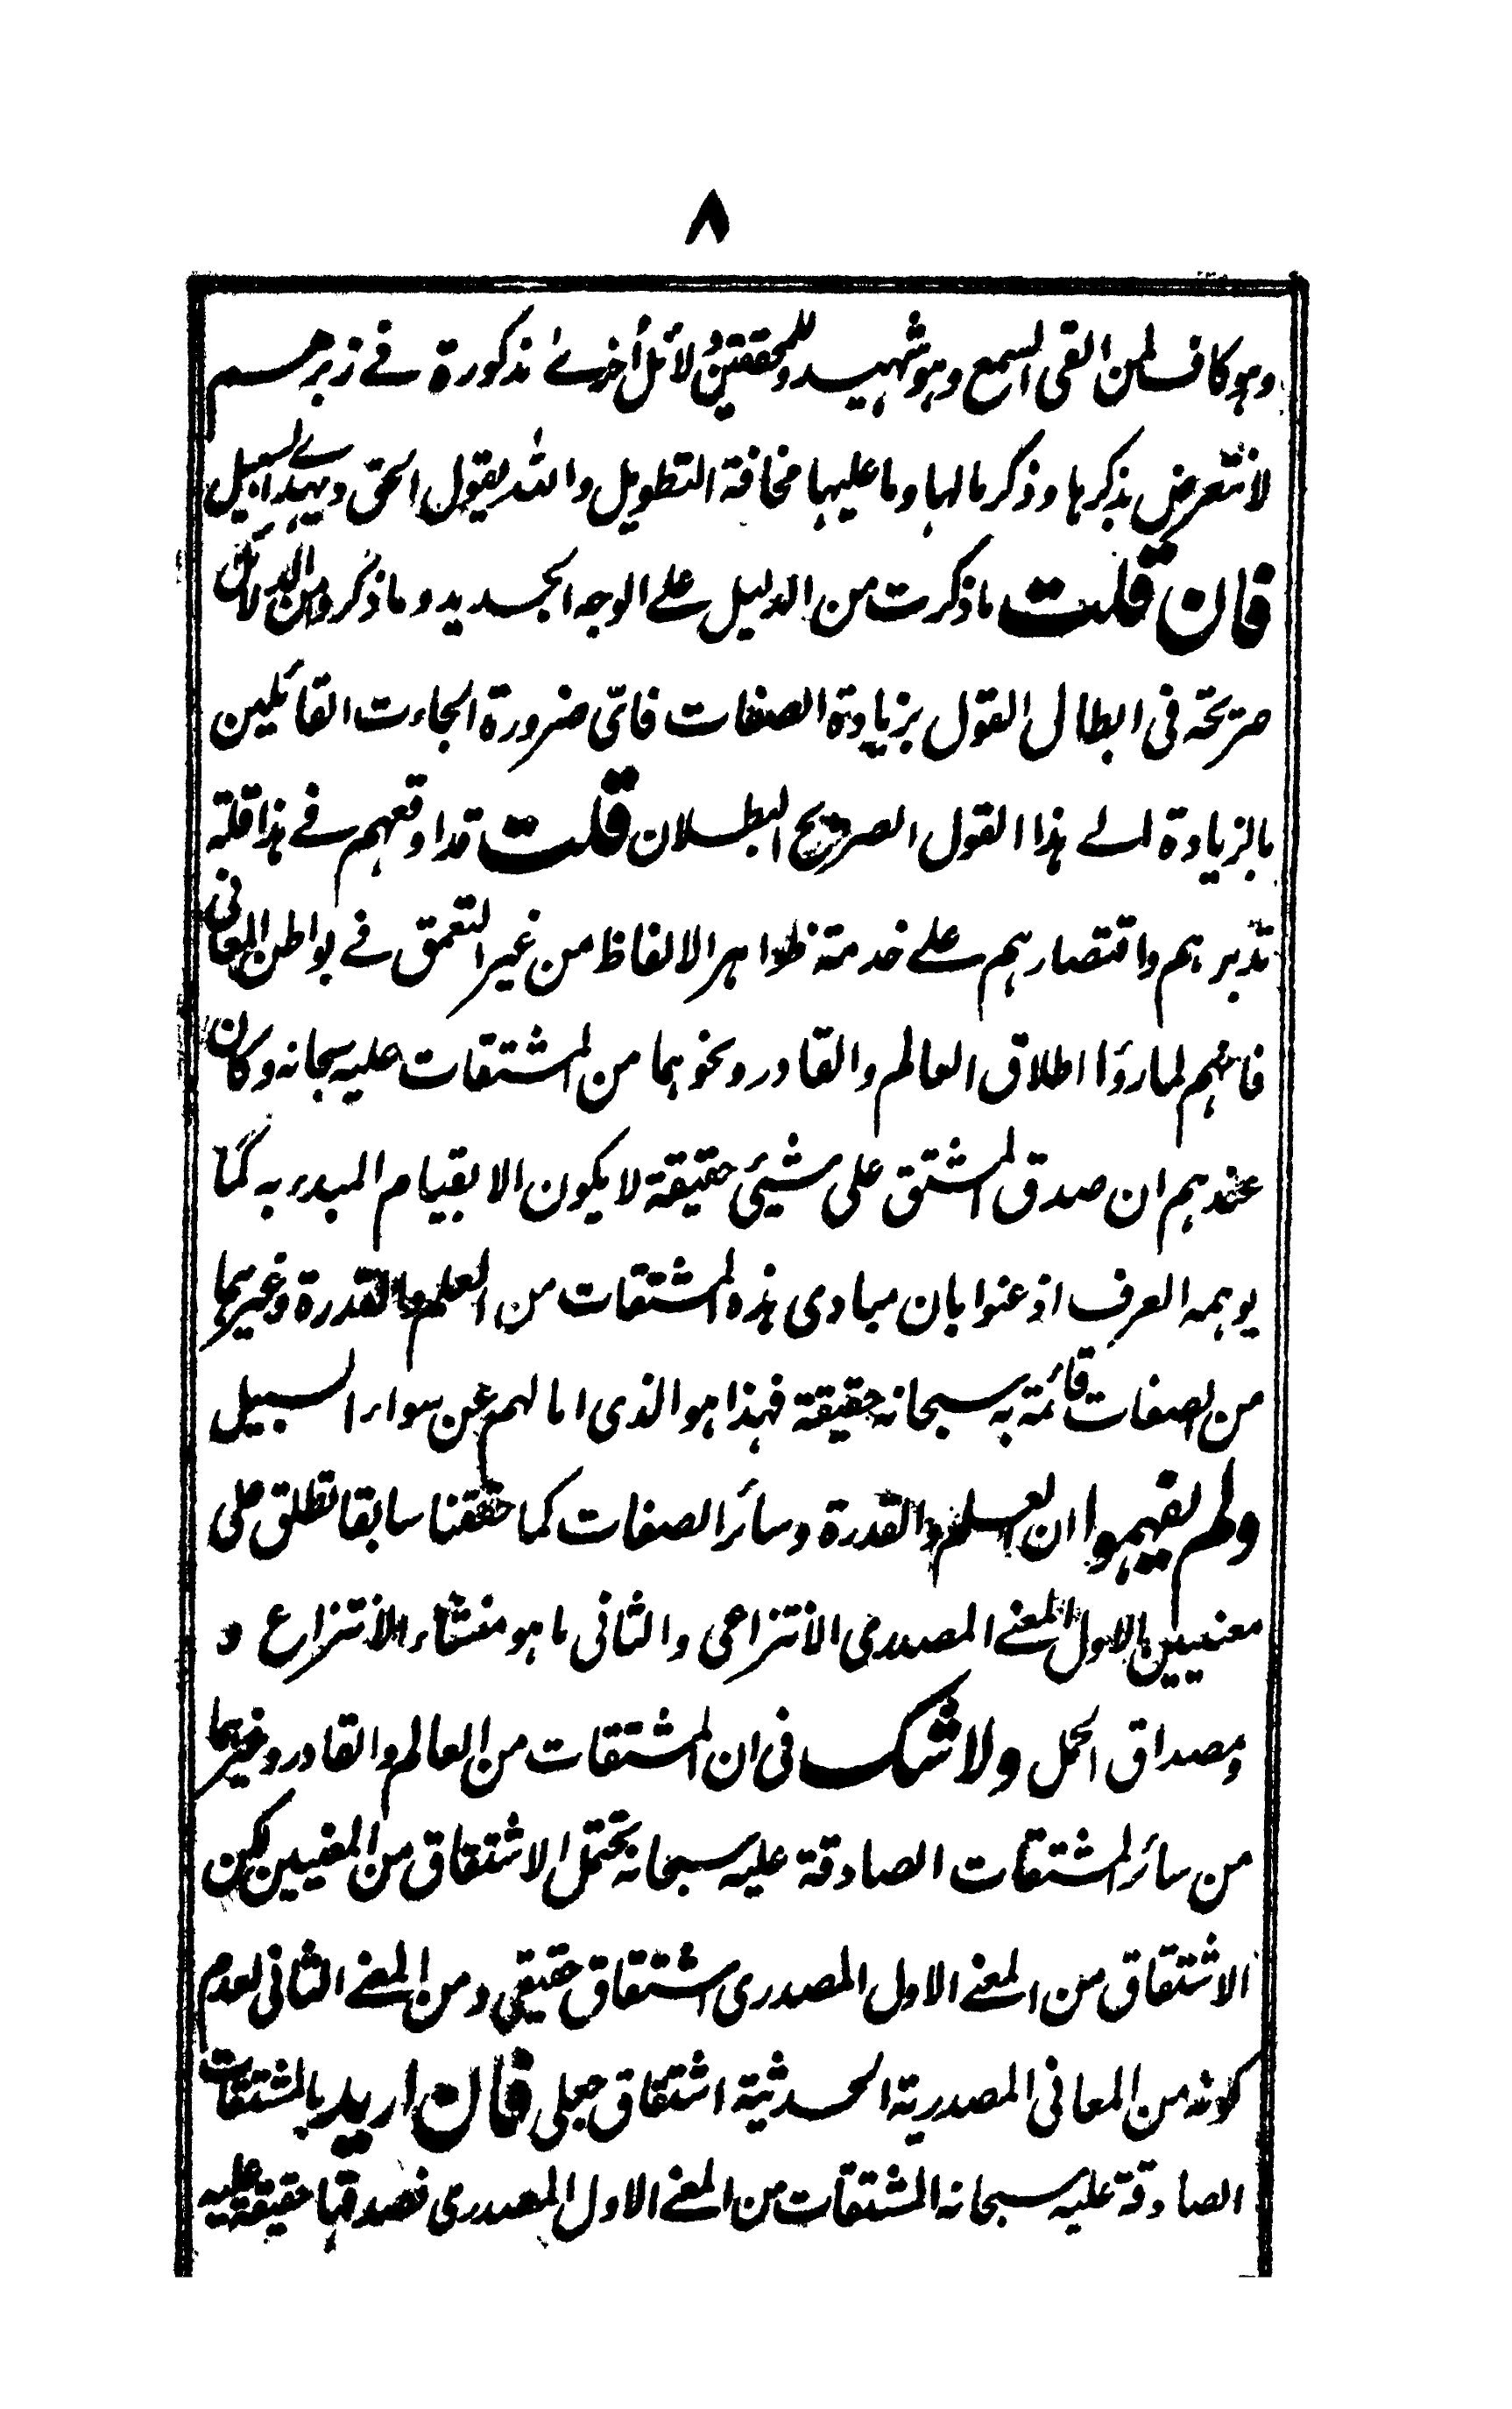 ٨
وہو کاف لمن القی السمع وہو شہید وللمحققین دلائل أخرےٰ مذکورۃ فے زبرہم
لا نتعرض بذکرہا وذکر مالہا وما علیہا مخافۃ التطویل واللہ یقول الحق ویہدے السبیل
فان قلت ما ذکرت من الدلیل علے الوجہ الجدید وما ذکروا من الدلائل
صریحۃ فی ابطال القول بزیادۃ الصفات فایّ ضرورۃ الجاءت القائلین
بالزیادۃ الے ہذا القول الصریح البطلان قلت قد اوقعہم فے ہذا قلۃ
تدبرہم واقتصارہم علے خدمۃ ظواہر الالفاظ من غیر التعمق فے بواطن المعانی
فانہم لما رؤا اطلاق العالم والقادر ونحوہما من المشتقات علیہ سبحانہ وکان
عندہم ان صدق المشتق علی شیئی حقیقۃ لا یکون الا بقیام المبدء بہ کما
یوہمہ العرف اذعنوا بان مبادی ہذہ المشتقات من العلم والقدرۃ وغیرہما
من الصفات قائمۃ بہ سبحانہ حقیقۃ فہذا ہو الذی امالہم عن سواء السبیل
ولم یفہموا ان العلم والقدرۃ وسائر الصفات کما حققنا سابقا تطلق علی
معنیین الاول المعنے المصدری الانتزاعی والثانی ما ہو منشاء الانتزاع و
ومصداق الحمل ولا شک فی ان المشتقات من العالم والقادر وغیرہما
من سائر المشتقات الصادقۃ علیہ سبحانہ تحتمل الاشتقاق من المعنیین لکن
الاشتقاق من المعنے الاول المصدری اشتقاق حقیقی ومن المعنے الثانی لعدم
کونہ من المعانی المصدریۃ الحدثیۃ اشتقاق جعلی فان ارید بالمشتقات
الصادقۃ علیہ سبحانہ المشتقات من المعنے الاول المصدری فصدقہا حقیقۃ علیہ